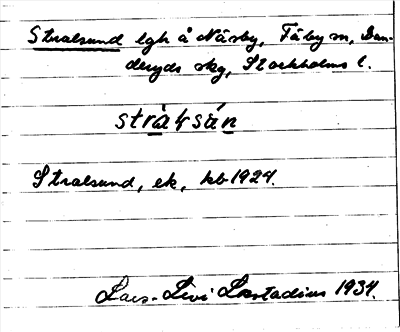 Stralsund lgh å Näsby, Täby sn, Dan-
deryds skg, Stockholms l.
stràḷsán
Stralsund, ek, kb 1924.
Lars-Levi Læstadius 1934.